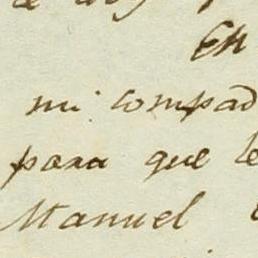 En
mi compad
para que le
Manuel